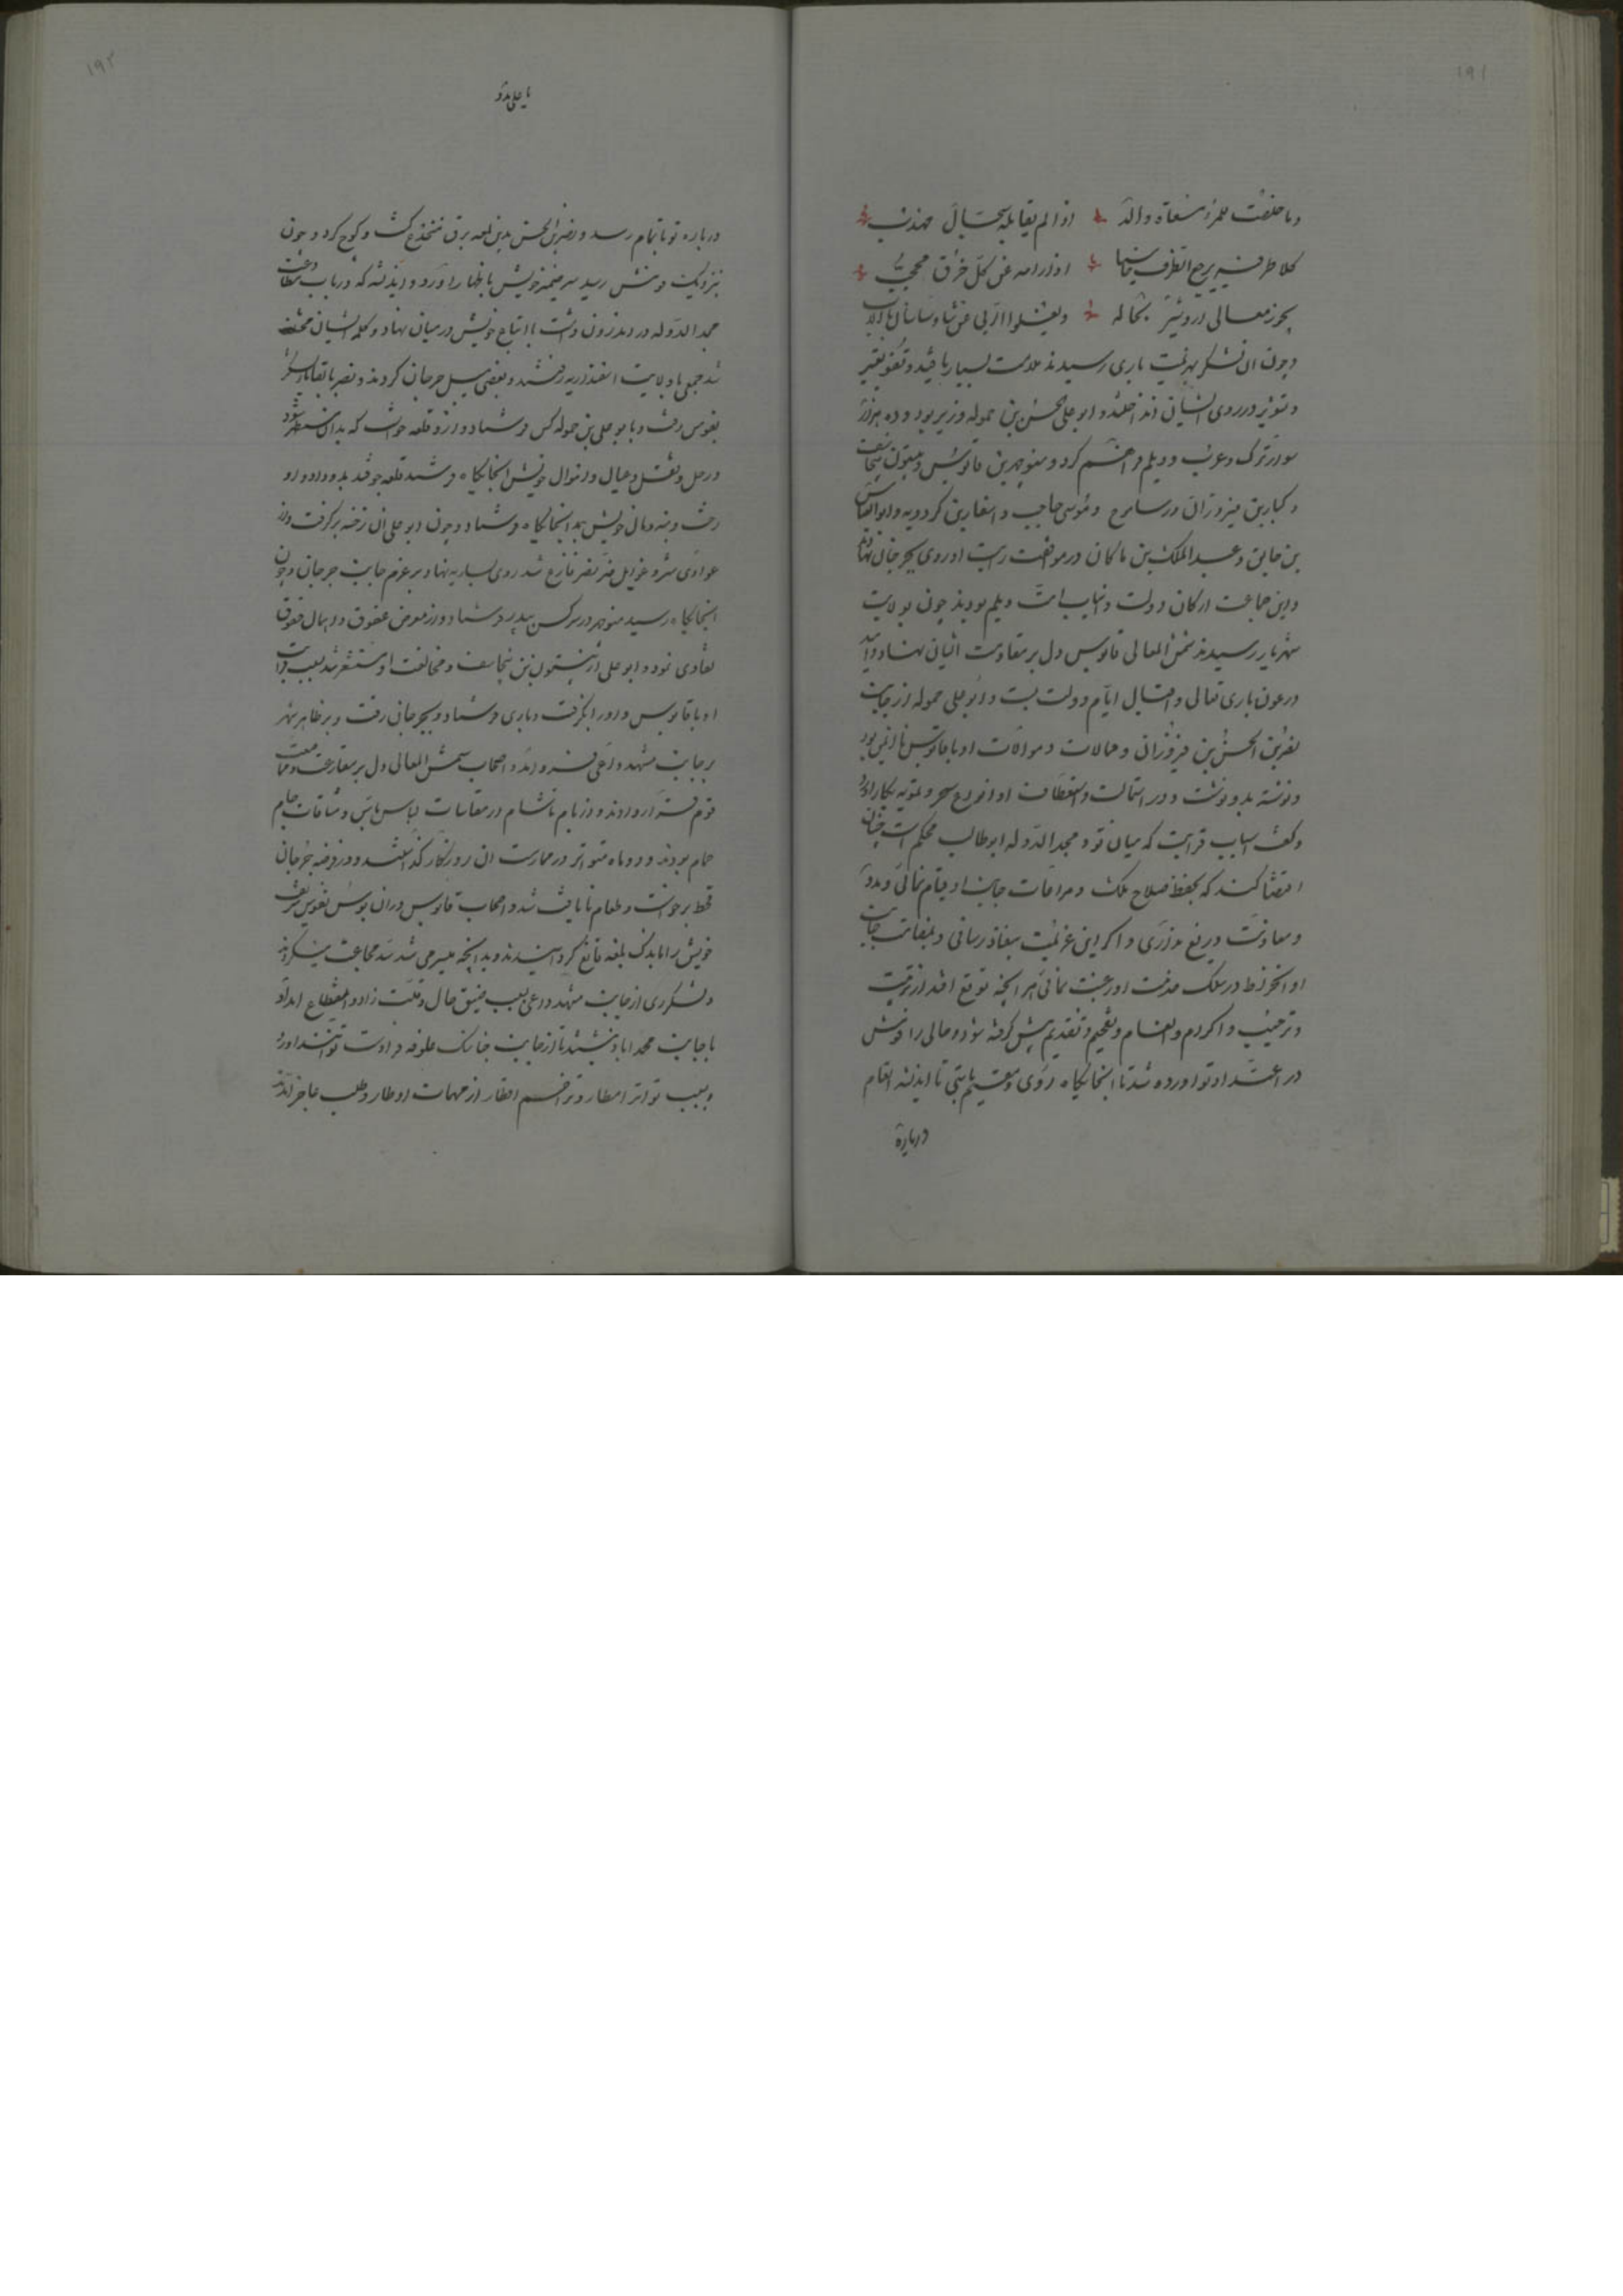 ۱۹۱
وما خلفت للمرء مسعاة والد اذا لم يقابله بحال مهذب
كلا طرفيه يرجع الطرف خاسئا اذا رامه عن كل خرق محجب
يحوز معالى اردشير بخاله
و چون آن لشکر بهزیمت باری رسیدند ملامت بسیار یافتند و تقریر تقصیر
در روی ایشان انداختند و ابو علی الحسن بن حموله وزیر بود و ده هزار
سوار ترک و عرب و دیلم فراهم کرد و منوچهر بن قابوس و بیستون بن تیجاسف
و کبار بن فیروزان و موسی حاجب و اسفار بن کردویه و ابو العباس
بن جایی و عبد الملک بن ماکان در موافقت رایت او روی بجرجان نهادند
و این جماعت ارکان دولت و انیاب دیلم بودند چون بولایت
شهریار رسیدند شمس المعالی قابوس دل بر مقاومت ایشان نهاد و امید
در عون باری تعالی و اقبال ایام دولت بست و ابو علی حموله از جانب
نصر بن الحسن بن فیروزان و موالات او با قابوس نا ایمن بود
و نوشته بدو نوشت و در استمالت و استعطاف او انواع سحر و تمویه بکار آورد
و گفت اسباب قرابت که میان تو و مجد الدوله ابو طالب محکم است چنان
اقتضا کند که بحفظ صلاح ملک و مراعات جانب او قیام نمائی و مدد
و معاونت دریغ نداری و اگر این عزیمت بنفاذ رسانی
و انخراط در سلک خدمت او رغبت نمائی هر آنچه توقع افتد از تربیت
و ترحیب و اکرام و انعام و تفخیم و تقدیم پیش گرفته شود و حالی را قومش
در اعتداد تو آورده شد تا آنجایگاه روی و مقیم باشی تا اندیشه انعام
درباره
۱۹۲
یا علی مدد
درباره تو باتمام رسد و نصر بن الحسن بدین لمعه برق منخدع گشت و کوچ کرد و چون
بنزدیک قومش رسید سر ضمیر خویش باظهار آورد و اندیشه که در باب مطاوعت
مجد الدوله در اندرون داشت با اتباع خویش در میان نهاد و کلمه ایشان مختلف
شد جمعی با ولایت استنداریه رفتند و بعضی میل جرجان کردند و نصر با بقایا لشکر
بقومس رفت و با بو علی بن حموله کس فرستاد و ازو قلعه خواست که بدان مستظهر شود
و رحل و ثقل و عیال و اموال خویش آنجایگاه فرستد قلعه جومند بدو داد و او
رخت و بنه و مال خویش بدانجایگاه فرستاد و چون ابو علی آن رخنه برگرفت و از
عوادی شر و غوایل ضر نصر فارغ شد روی بساریه نهاد بر عزم جانب جرجان و چون
آنجایگاه رسید منوچهر در سر کس بپدر فرستاد و از معرض عقوق و اهمال حقوق
تفادی نمود و ابو علی از بیستون بن تیجاسف و مخالفت او مستشعر شد بسبب قرابت
او با قابوس و او را بگرفت و باری فرستاد و بجرجان رفت و بر ظاهر شهر
بر جانب مشهد داعی فرود آمد و اصحاب شمس المعالی دل بر مقارعت و ممانعت
قوم قرار دادند و از بام تا شام در مقاسات لباس باس و مشاقات جام
حمام بودند و دو ماه متواتر در ممارست آن روزگار گذاشتند و در عرصه جرجان
قحط برخاست و طعام نایافت شد و اصحاب قابوس در آن بوس نفوس شریف
خویش را باندک بلغه قانع گردانیدند و بدانچه میسر می شد سد مجاعت میکردند
و لشکر ری از جانب مشهد داعی بسبب ضیق حال و قلت زاد و انقطاع امداد
با جانب محمداباد نشستند تا از جانب خناسک علوفه فرادست توانند آورد
و بسبب تواتر امطار و تراکم اقطار از مهمات اوطار و طلب عاجز آمدند